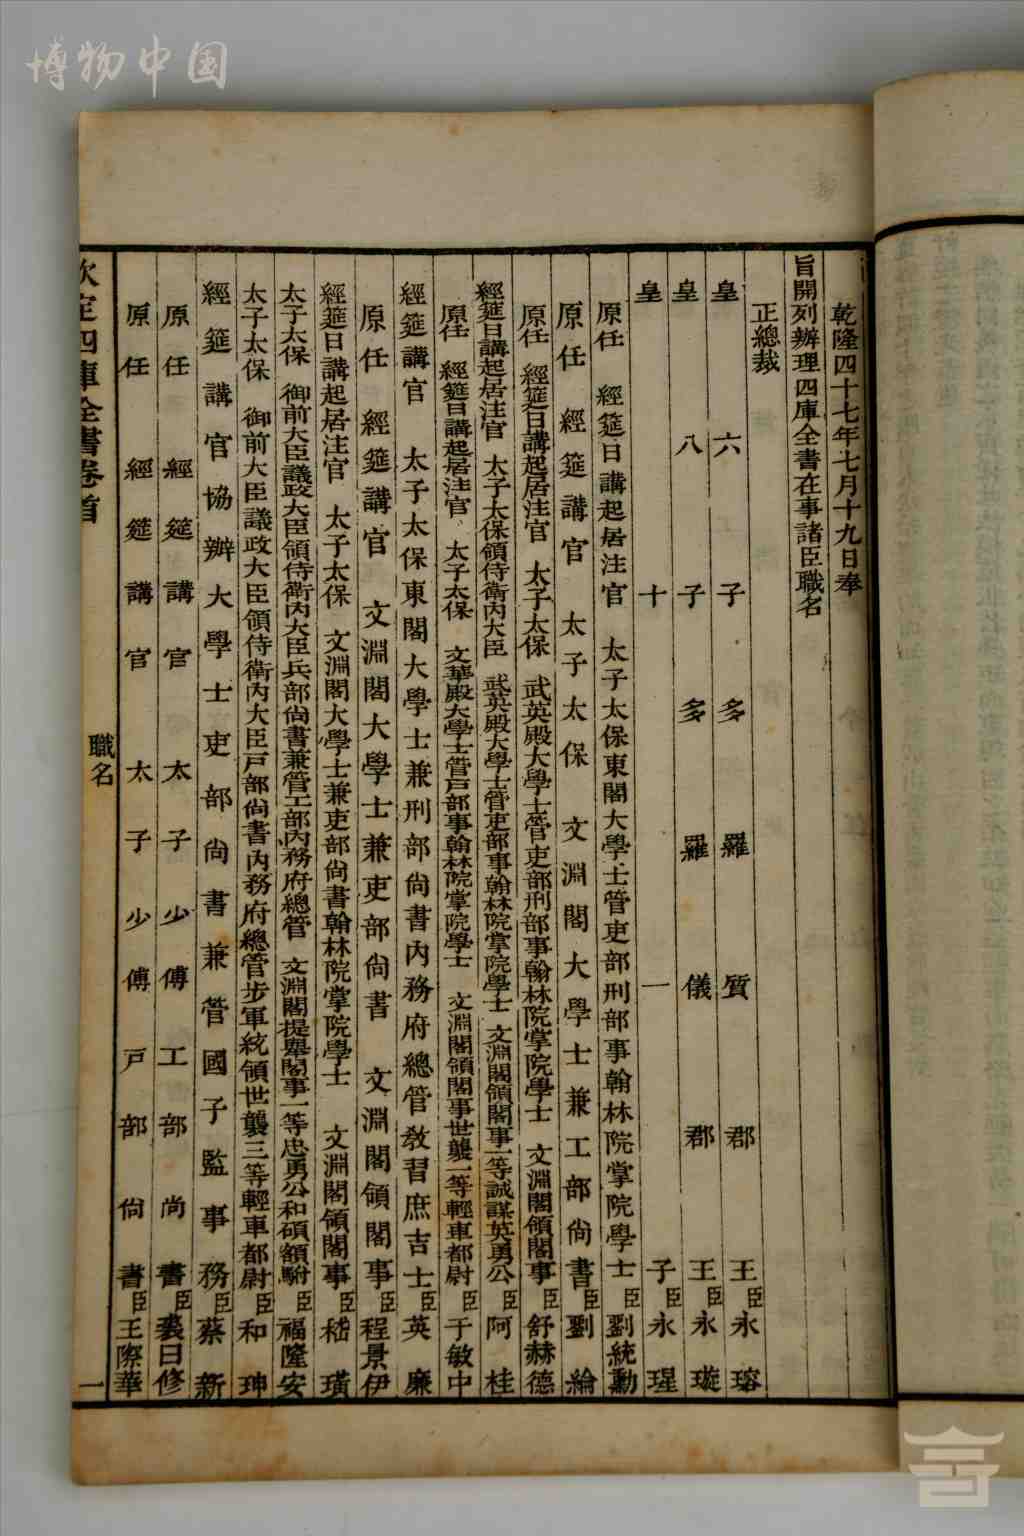 博物中国
乾隆四十七年七月十九日奉
旨開列辦理四庫全書在事諸臣職名
正總裁
皇六子多羅質郡王臣永瑢
皇八子多羅儀郡王臣永璇
皇十一子臣永瑆
原任 經筵日講起居注官 太子太保東閣大學士管吏部刑部事翰林院掌院學士臣劉統勳
原任 經筵講官 太子太保 文淵閣大學士兼工部尚書臣劉綸
原任 經筵日講起居注官 太子太保 武英殿大學士管吏部刑部事翰林院掌院學士 文淵閣領閣事臣舒赫德
經筵日講起居注官 太子太保領侍衛內大臣 武英殿大學士管吏部事翰林院掌院學士 文淵閣領閣事一等誠謀英勇公臣阿桂
原任 經筵日講起居注官 太子太保 文華殿大學士管戶部事翰林院掌院學士 文淵閣領閣事世襲一等輕車都尉臣于敏中
經筵講官 太子太保東閣大學士兼刑部尚書內務府總管教習庶吉士臣英廉
原任 經筵講官 文淵閣大學士兼吏部尚書 文淵閣領閣事臣程景伊
經筵日講起居注官 太子太保 文淵閣大學士兼吏部尚書翰林院掌院學士 文淵閣領閣事臣嵇璜
太子太保 御前大臣議政大臣領侍衛內大臣兵部尚書兼管工部內務府總管 文淵閣提舉閣事一等忠勇公和碩額駙臣福隆安
太子太保 御前大臣議政大臣領侍衛內大臣戶部尚書內務府總管步軍統領世襲三等輕車都尉臣和珅
經筵講官協辦大學士吏部尚書兼管國子監事務臣蔡新
原任 經筵講官 太子少傅工部尚書臣裘曰修
原任 經筵講官 太子少傅戶部尚書臣王際華
欽定四庫全書卷首 職名 一